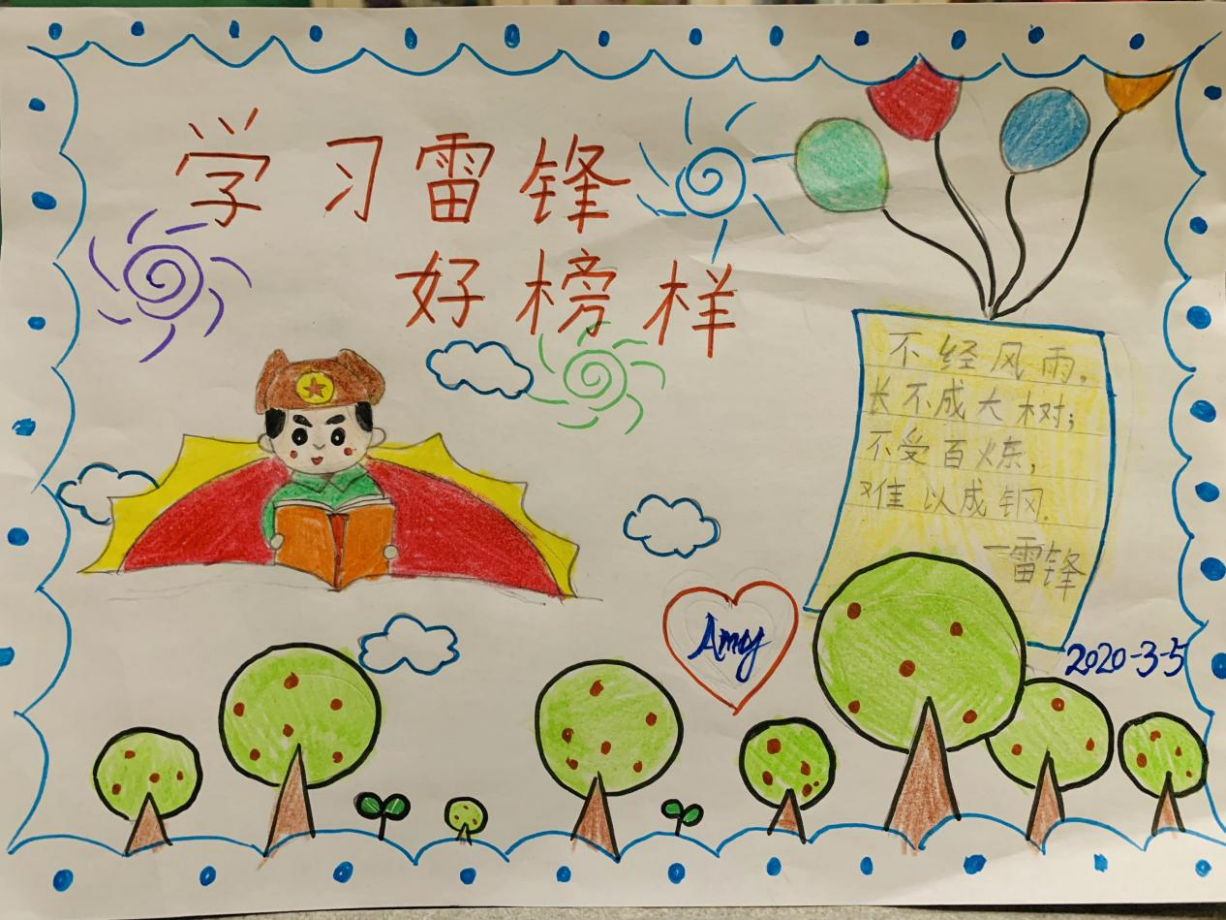 学习雷锋
好榜样
不经风雨,
长不成大树;
不受百炼,
难以成钢.
一雷锋
Amy
2020-3-5